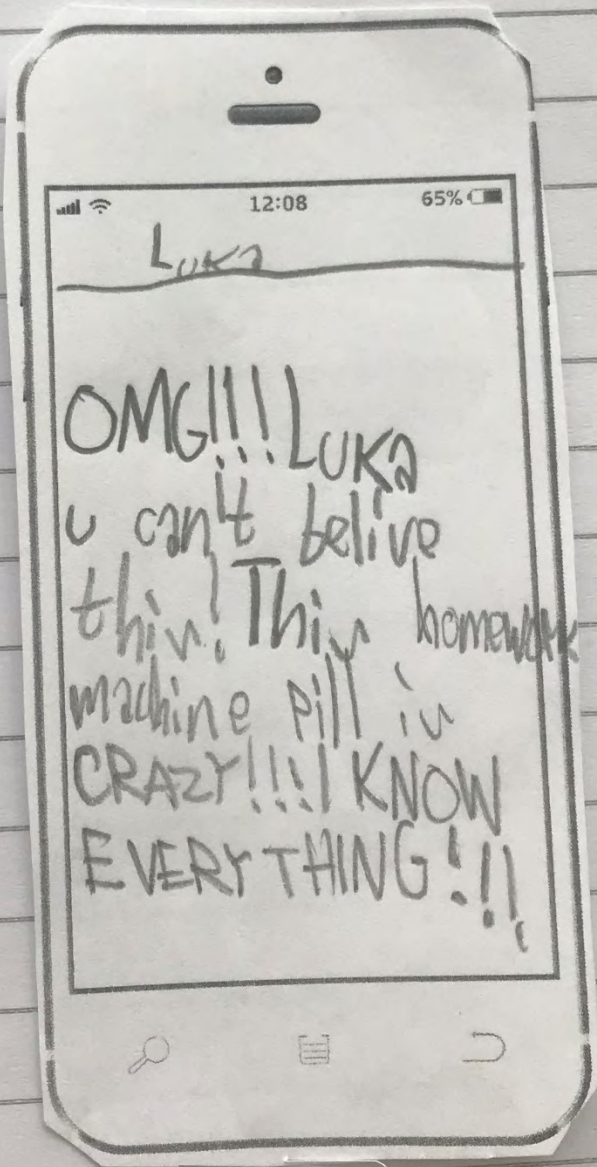 12:08 65%
Luka
OMG!!! Luka
u can't belive
this! This homework
machine pill is
CRAZY!!! I KNOW
EVERYTHING!!!